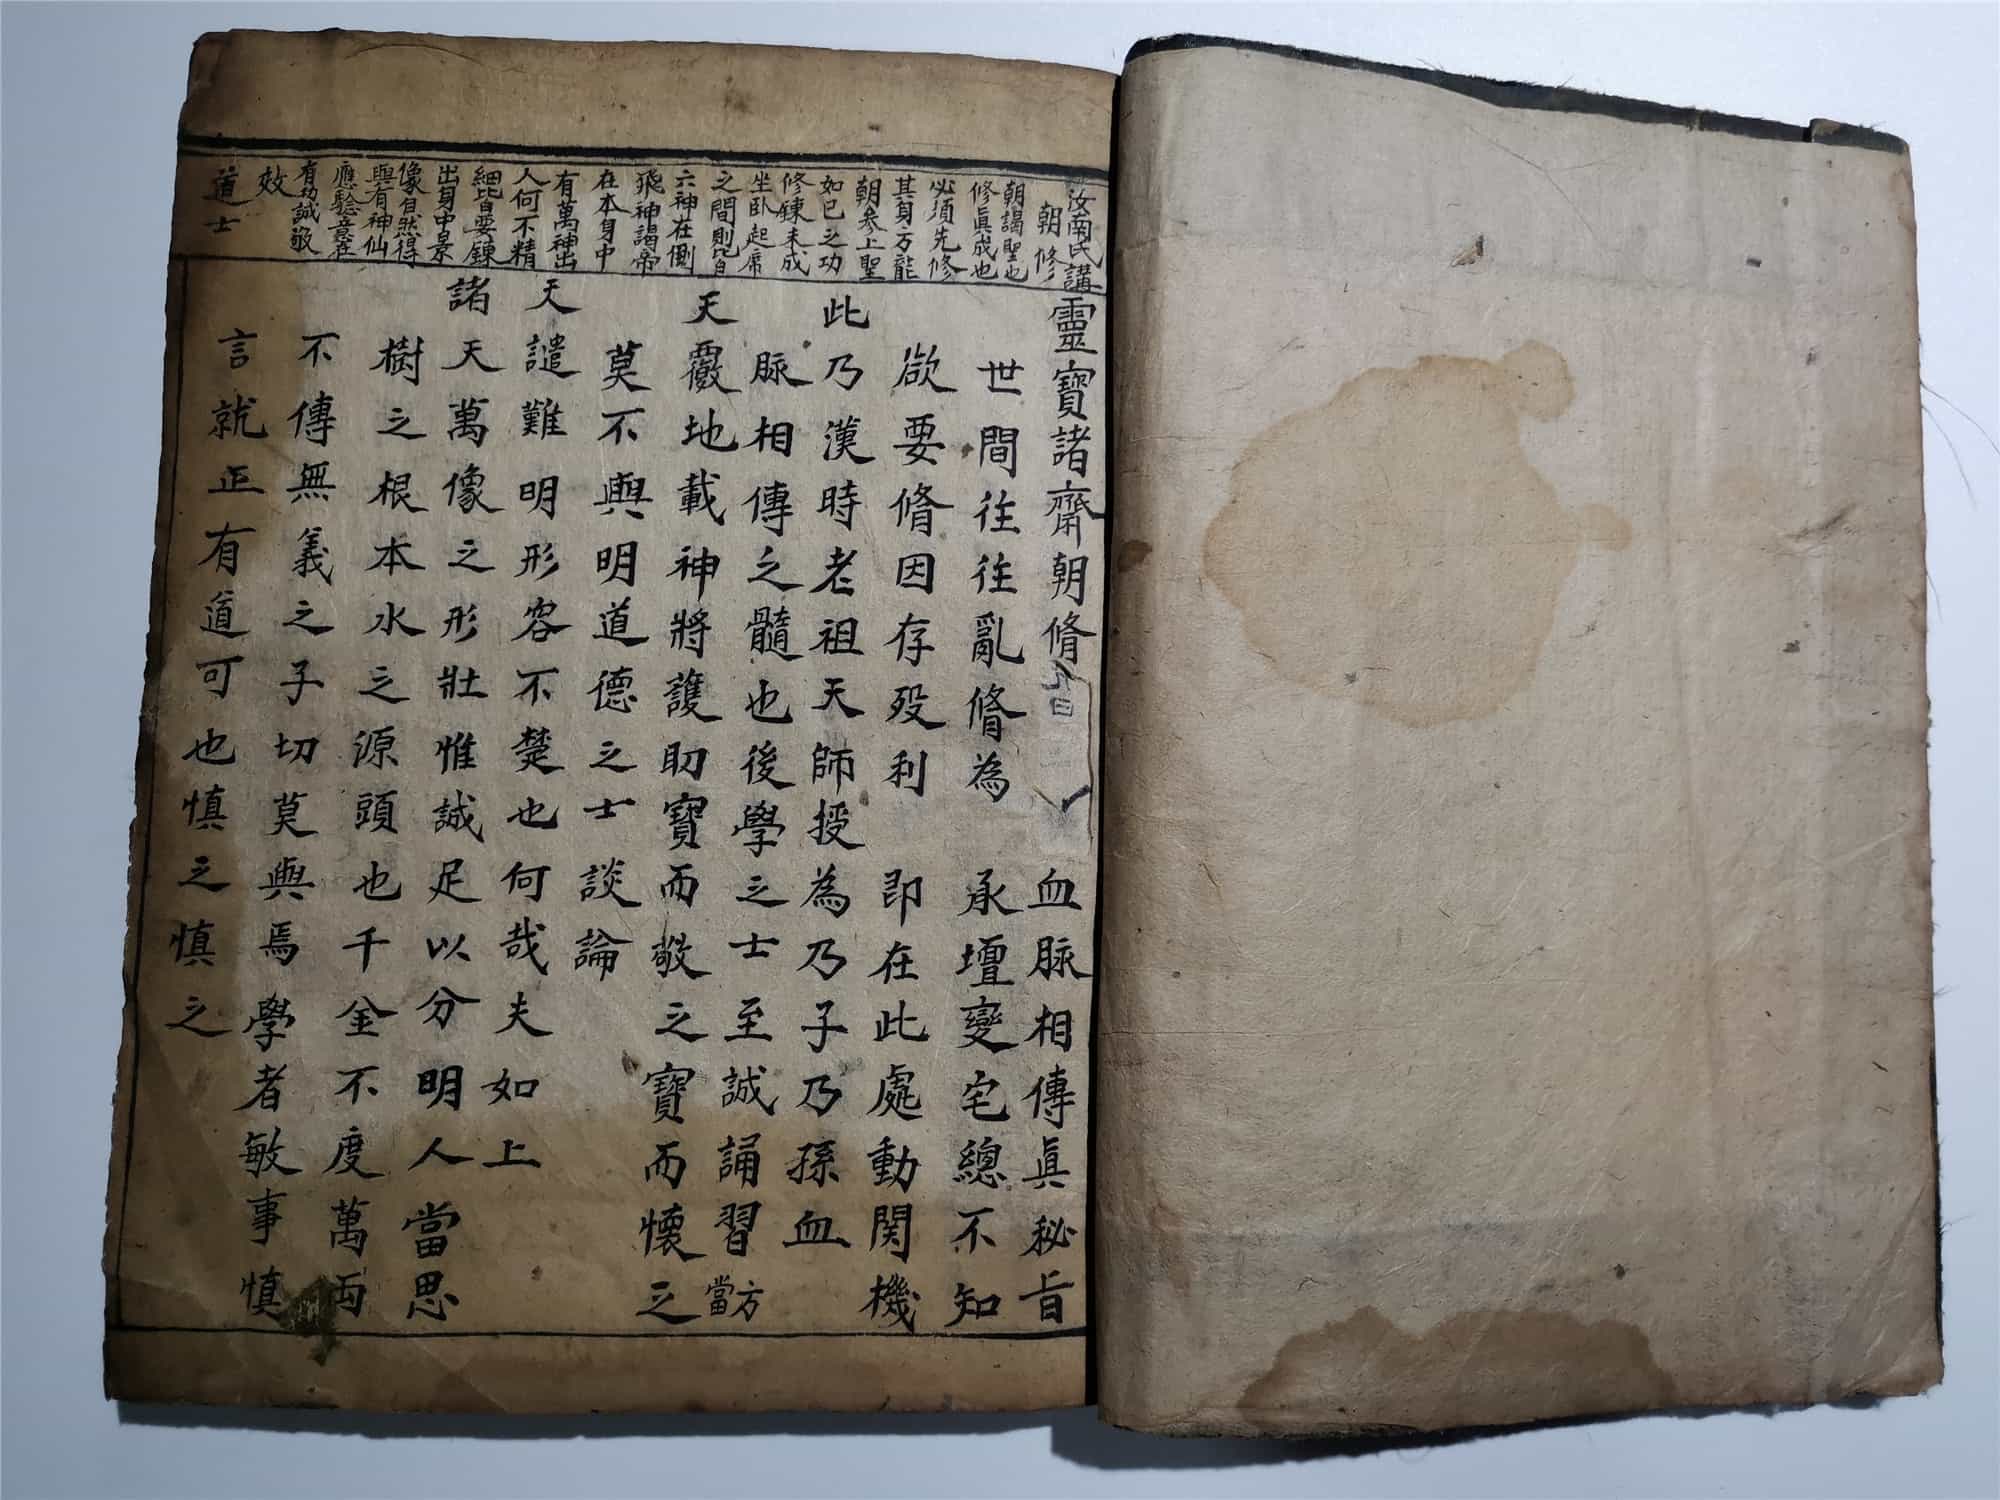 汝南氏講
朝修
朝謁聖也
修眞成也
必須先修
其身方能
朝參上聖
如已之功
修鍊未成
坐卧起席
之間則此自
六神在側
飛神謁帝
在本身中
有萬神出
人何不精
細皆要鍊
出身中景
像自然得
與有神仙
應驗意在
有功誠敬
效
道士
靈寶諸齋朝脩 血脉相傳眞秘旨
世間往往亂脩為 承壇變宅總不知
欲要脩因存殁利 即在此處動関機
此乃漢時老祖天師授為乃子乃孫血
脉相傳之髓也後學之士至誠誦習方當
天覆地載神將護助寳而敬之寳而懷之
莫不與明道德之士談論
天譴難明形容不楚也何哉夫如上
諸天萬像之形壯惟誠足以分明人當思
樹之根本水之源頭也千金不度萬両
不傳無義之子切莫與焉學者敏事慎
言就正有道可也慎之慎之